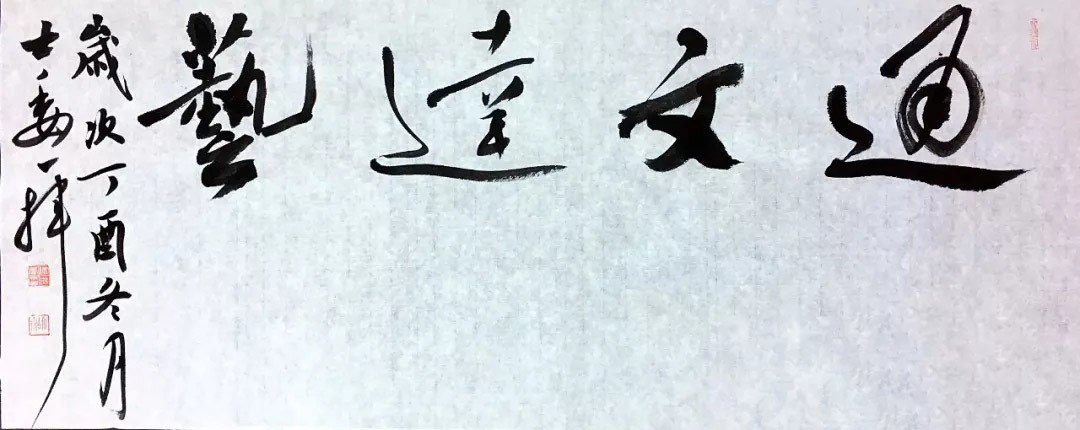 通文達藝
歲次丁酉冬月